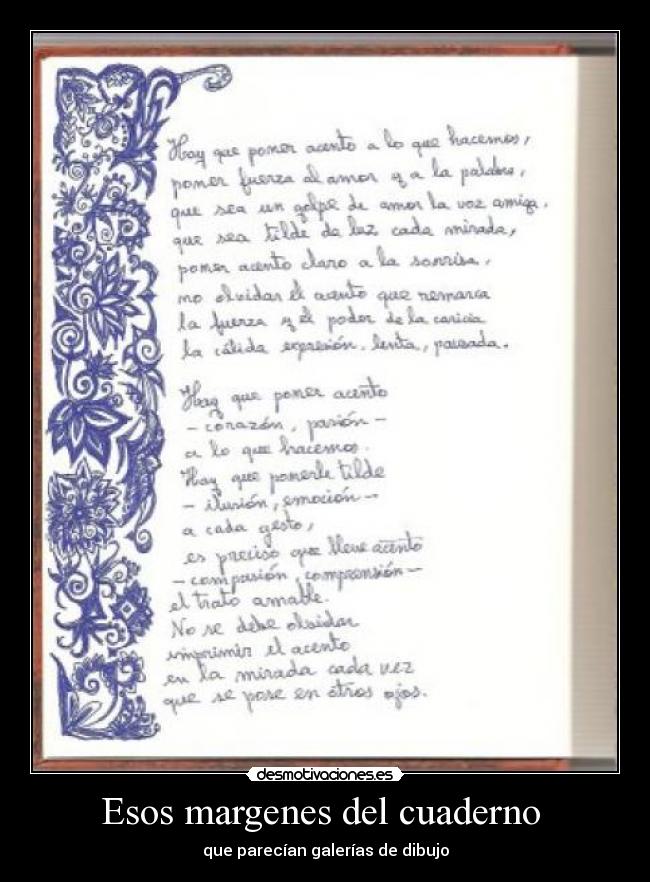 Hay que poner acento a lo que hacemos,
poner fuerza al amor y a la palabra,
que sea un golpe de amor la voz amiga,
que sea tilde de luz cada mirada,
poner acento claro a la sonrisa,
no olvidar el acento que remarca
la fuerza y el poder de la caricia
la cálida expresión. lenta, pausada.
Hay que poner acento
- corazón, pasión -
a lo que hacemos.
Hay que ponerle tilde
- ilusión, emoción -
a cada gesto,
es preciso que lleve acento
- compasión, comprensión -
el trato amable.
No se debe olvidar
imprimir el acento
en la mirada cada vez
que se pose en otros ojos.
desmotivaciones.es
Esos margenes del cuaderno
que parecían galerías de dibujo